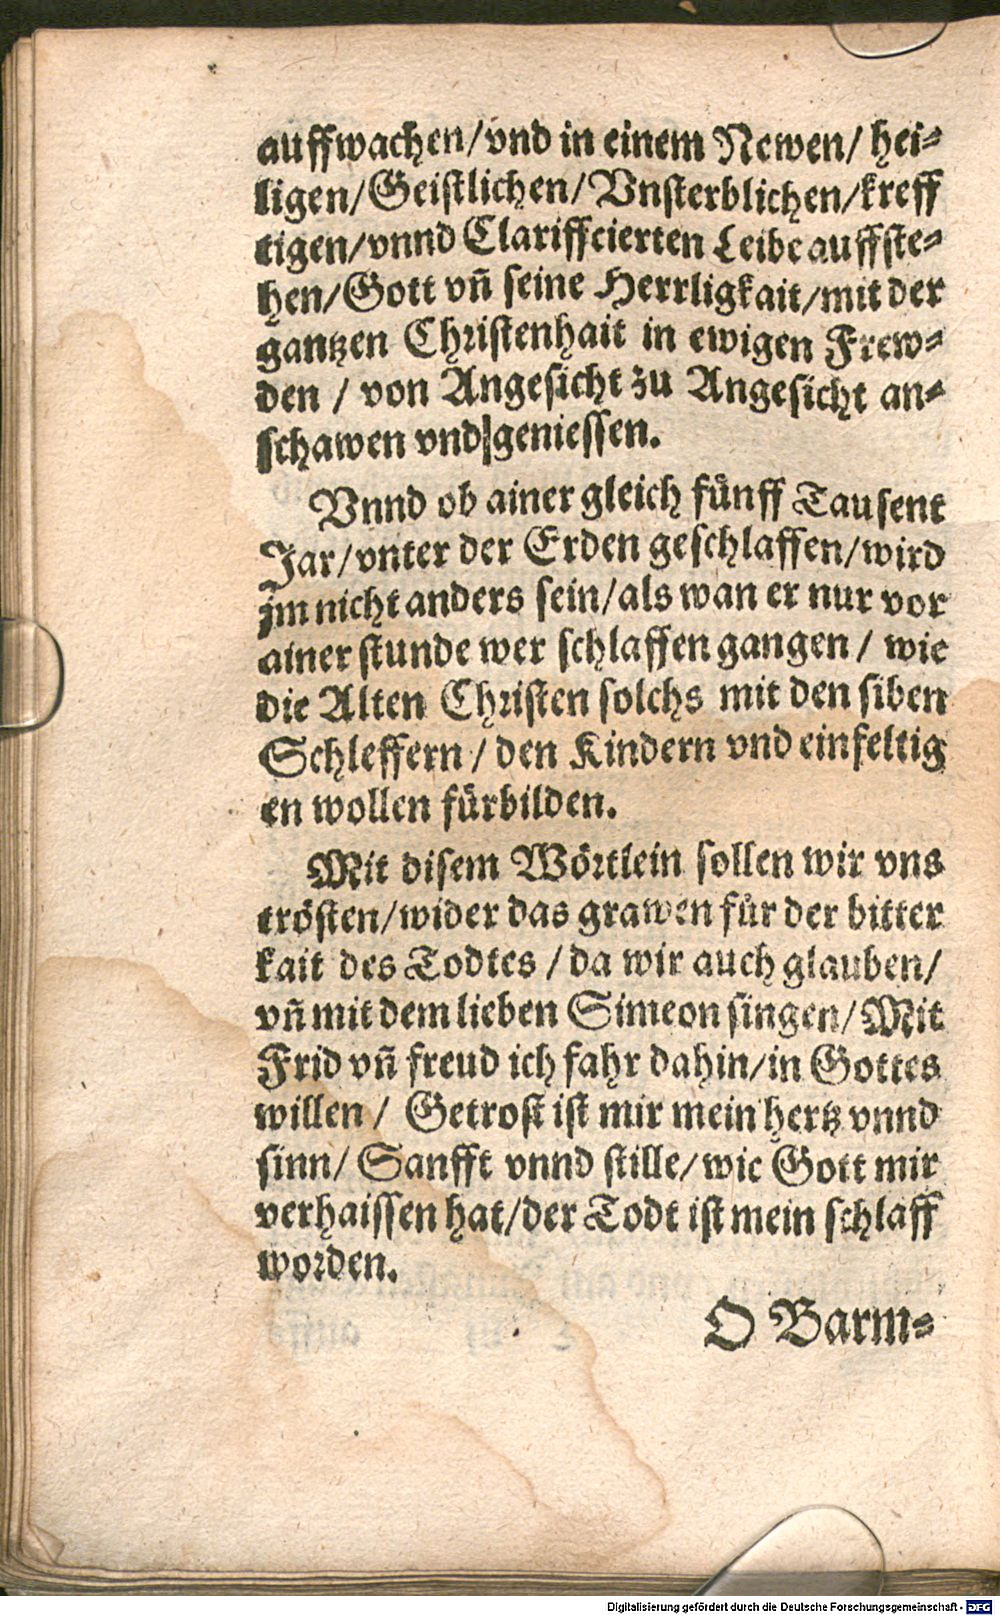 auffwachen/vnd in einem Newen/ hei-
ligen/Geistlichen/Vnsterblichen/kreff
tigen/vnnd Clariffcierten Leibe auffste-
hen/Gott vñ seine Herrligkait/mit der
gantzen Christenhait in ewigen Frew-
den / von Angesicht zu Angesicht an-
schawen vnd geniessen.
Vnnd ob ainer gleich fünff Tausent
Jar/vnter der Erden geschlaffen/wird
jm nicht anders sein/als wan er nur vor
ainer stunde wer schlaffen gangen / wie
die Alten Christen solchs mit den siben
Schleffern / den Kindern vnd einfeltig
en wollen fürbilden.
Mit disem Wörtlein sollen wir vns
trösten/wider das grawen für der bitter
kait des Todtes / da wir auch glauben/
vñ mit dem lieben Simeon singen/ Mit
Frid vñ freud ich fahr dahin/in Gottes
willen / Getrost ist mir mein hertz vnnd
sinn/ Sanfft vnnd stille/wie Gott mir
verhaissen hat/der Todt ist mein schlaff
worden.
O Barm-
Digitalisierung gefördert durch die Deutsche Forschungsgemeinschaft - DFG